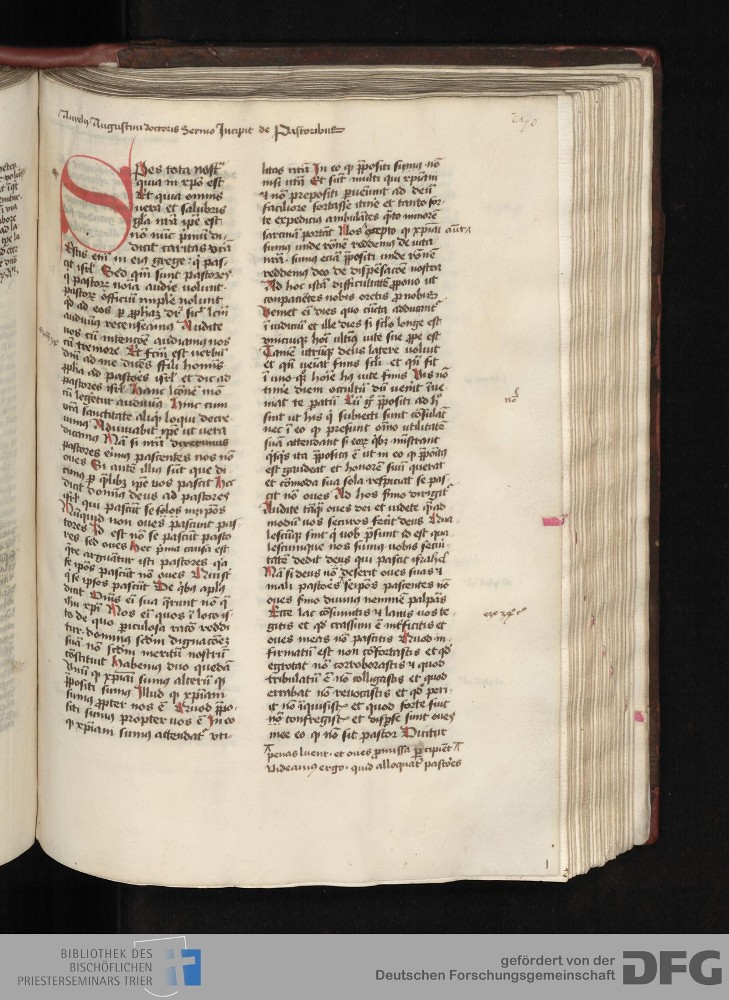 Aurelij Augustini doctoris Sermo Incipit de Pastoribus
Spes tota nostra
quia in xpo est
Et quia omnis
vera et salubris
gla nra ipe est
no nuc primu di
dicit caritas vra
Estis eni in eius grege q pas
cit isrl Sed qm sunt pastores
q pastoru noia audire volunt
pastoru officiu implere nolunt
audiuim recenseamus Audite
vos cu intencoe audiamus nos
cu tremore Et factu est verbu
dni ad me dicens fili hominis
ppha ad pastores isrl et dic ad
pastores isrl Hanc lcone mo
cu legetur audiuim Hinc cum
vra sanctitate aliqd loqui decre
uimus Adiuuabit ipe ut vera
dicamus Na si nra dixerimus
pastores erimus pascentes nos no
oues Si aute illius sut que di
cimus ipe vos pascit Hec
dicit dominus deus ad pastores
isrl qui pascut se solos
Nunquid non oues pascunt pas
tores Id est no se pascut pasto
res sed oues Hec prima causa est
qre arguutur isti pastores qa
se ipos pascut no oues
q se ipsos pascut De qbus apls
dicit Oms eni sua querut no q
ihu xpi Nos eni quos i loco is
to de quo periculosa raco reddi
tur dominus scdm dignacoez
sua no scdm meritu nostru
constituit Habemus duo quedam
Vnu q xpiani sumus alteru q
ppositi sumus Illud q xpiani
sumus propter nos e Quod ppo
siti sumus propter vos e In eo
q xpiani sumus attendat vti
240
litas nra In eo q ppositi sumus no
nisi vra Et sut multi qui xpiani
et no prepositi perueniut ad deu
faciliore fortasse itinere et tanto for
te expedicius ambulantes qto minore
sarcina portant Nos excepto q xpiani
sumus unde rone reddemus de vita
nra sumus ecia ppositi unde rone
reddemus deo de dispesacoe nostra
Ad hoc ista difficultate ppono ut
compacientes nobis oretis pro nobis
Veniet eni dies quo cuncta adducantur
i iudiciu et ille dies si sclo longe est
vnicuique homi ultimus vite sue ppe est
Tame utrumque deus latere voluit
et qn veniat finis scli et qn sit
i uno quoque hoie huius vite finis Vis no
timere diem occultu du venit inue
niat te paratu
sint ut his q subiecti sunt consulat
nec i eo q presunt omo utilitate
sua attendant si eor qbus ministrant
quisquis ita ppositus e ut in eo q ppositus
est gaudeat et honore suu querat
et comoda sua sola respiciat se pas
cit no oues Ad hos sermo dirigit
Audite tanquam oues dei et videte quead
modu vos securos fecit deus Qua
lescumque sint q vob presunt id est qua
lescumque nos simus nobis secu
ritate dedit deus qui pascit israhel
Na si deus no deserit oues suas et
mali pastores seipsos pascentes no
oues sermo diuinus nemine palpans
Ecce lac consumitis et lanis vos te
gitis et qd crassum e interficitis et
oues meas no pascitis Quod in
firmatu est non confortastis et qd
egrotat no corroborastis et quod
tribulatu e no colligastis et quod
errabat no reuocastis et qd peri
it no inquisistis et quod forte fuit
no confregistis et disperse sunt oues
mee eo q no sit pastor Dicitur
penas luent et oues promissa percipient
Videamus ergo quid alloquatur pastores
1
BIBLIOTHEK DES
BISCHÖFLICHEN
PRIESTERSEMINARS TRIER
gefördert von der
Deutschen Forschungsgemeinschaft
DFG